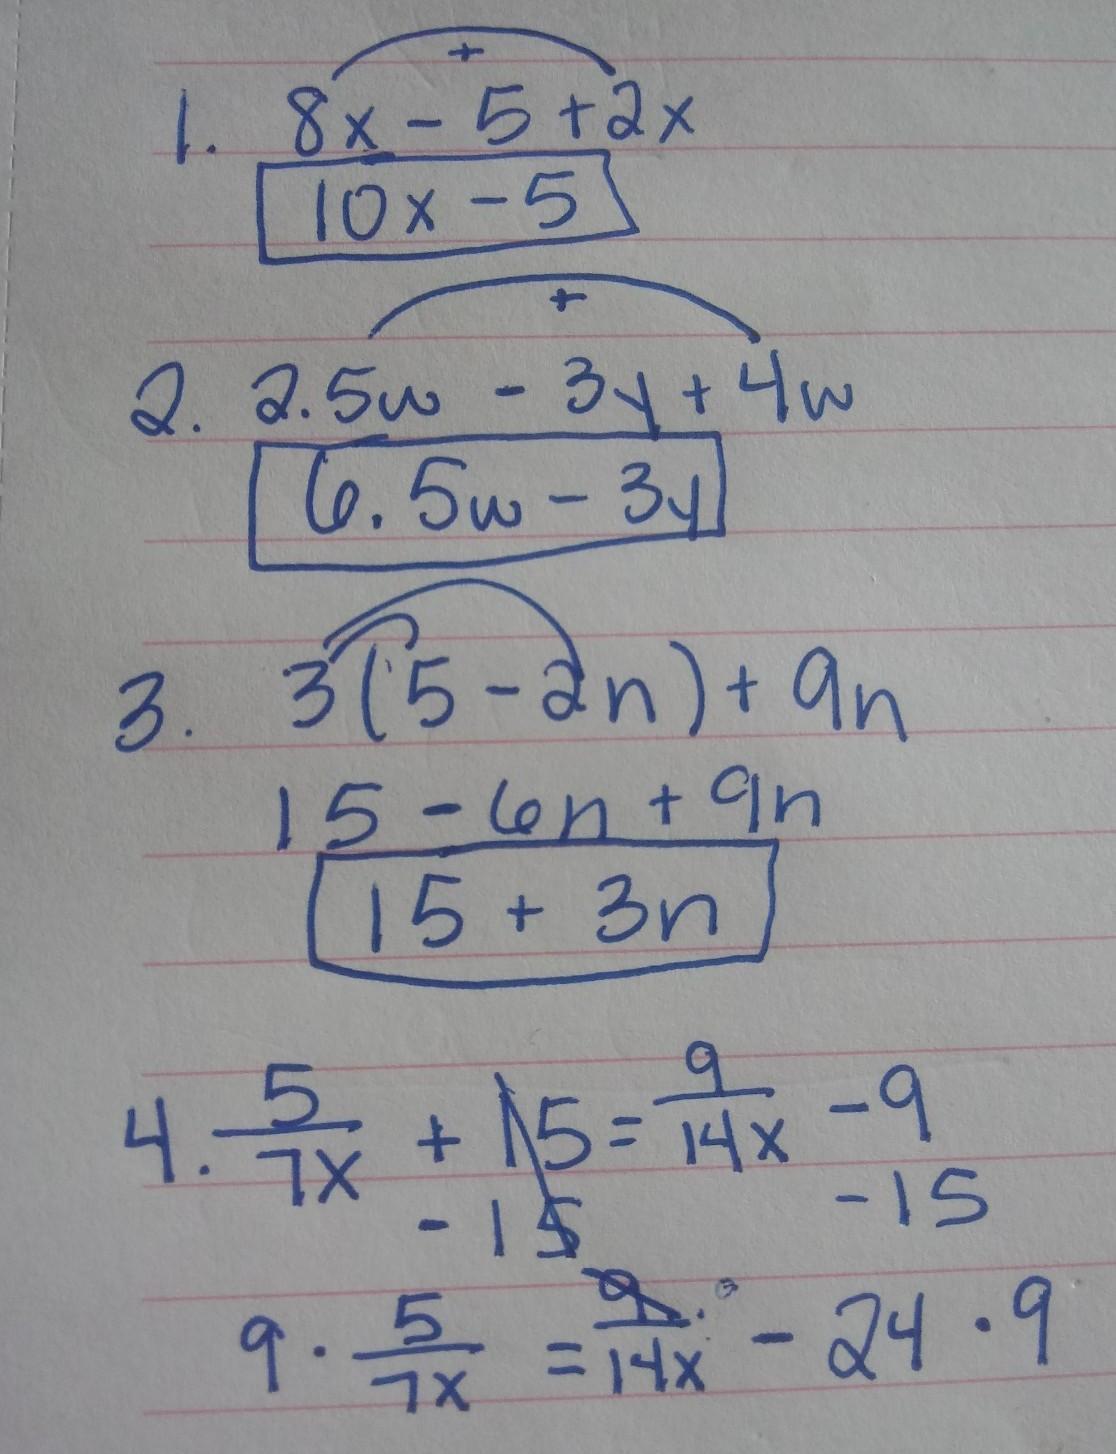 +
1. 8x - 5 + 2x
10x - 5
+
2. 2.5w - 3y + 4w
6.5w - 3y
3. 3(5 - 2n) + 9n
15 - 6n + 9n
15 + 3n
4. 5/7x + 15 = 9/14x - 9
- 15 - 15
9 · 5/7x = 9/14x · - 24 · 9